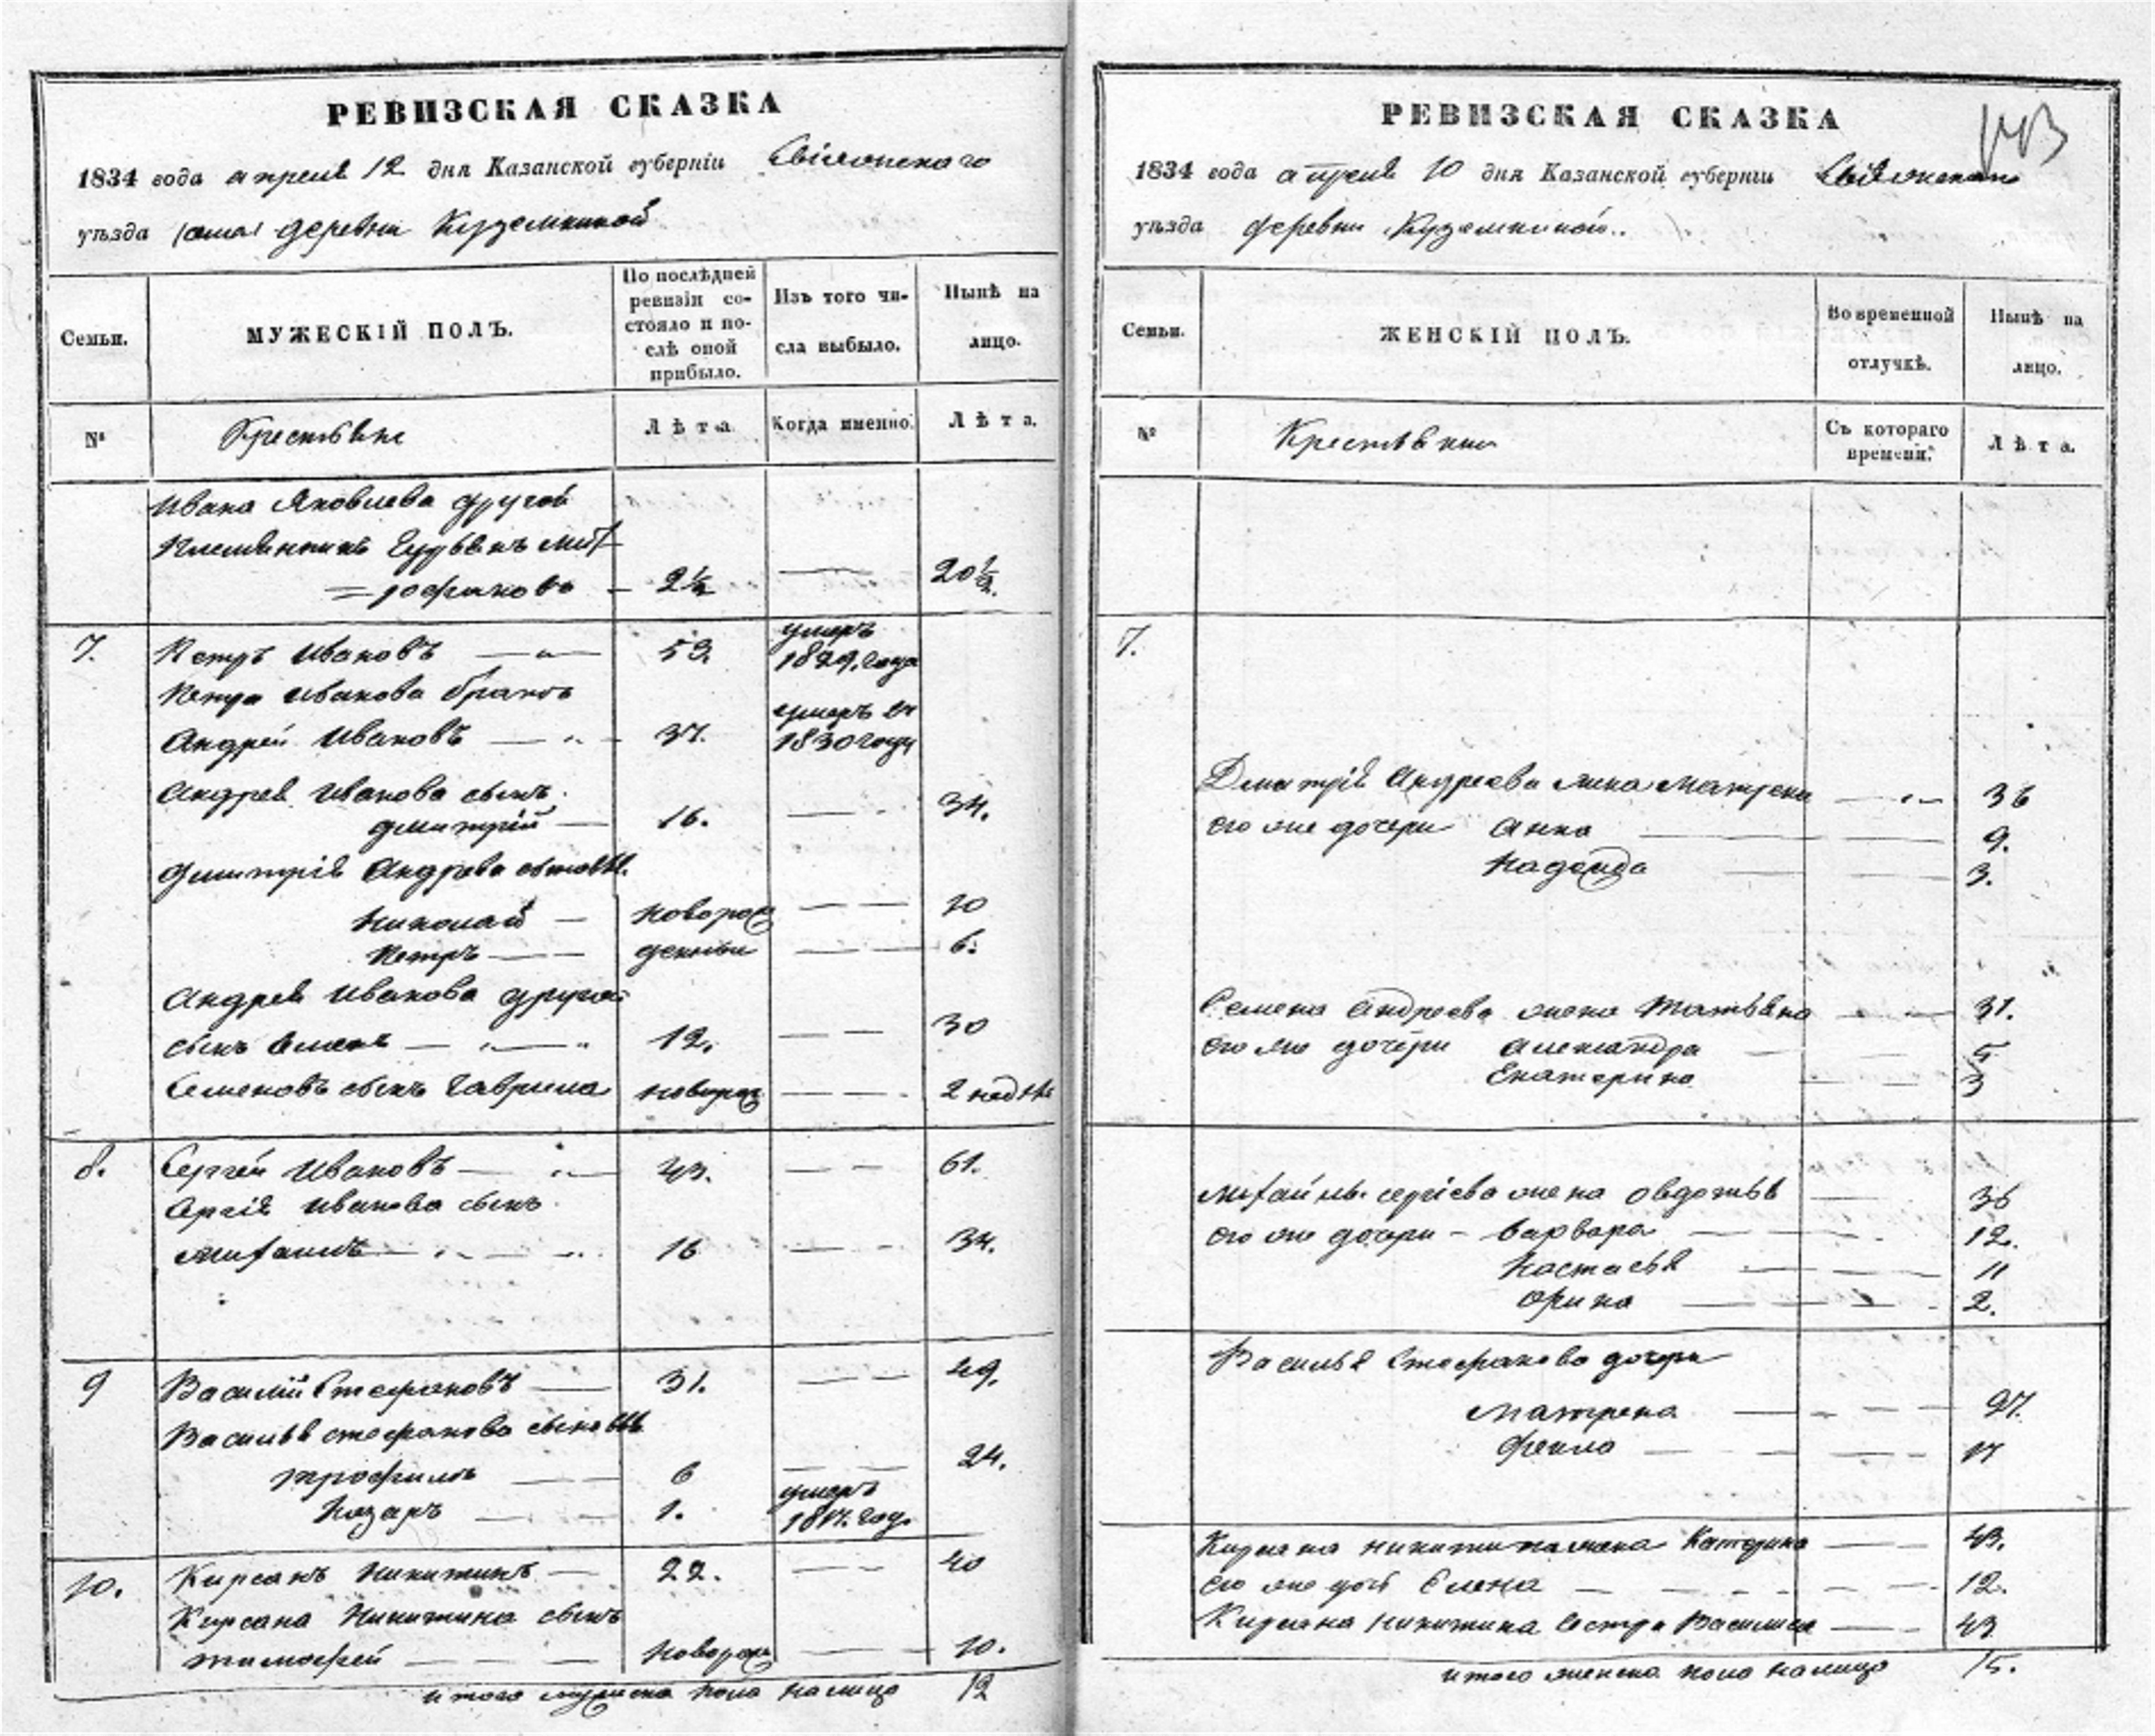 РЕВИЗСКАЯ СКАЗКА
1834 года апреля 12 дня Казанской губерніи Свіяжскаго
уѣзда деревни Куземкиной
Семьи.
МУЖЕСКІЙ ПОЛЪ.
По послѣдней ревизіи состояло и послѣ оной прибыло.
Изъ того числа выбыло.
Нынѣ на лицо.
№
Крестьяне
Лѣта.
Когда именно.
Лѣта.
Ивана Яковлева другой
Племянникъ Мит
=рофановъ — 2½ — 20½.
7. Петръ Ивановъ — 53. умеръ 1829. года
Петра Иванова братъ
Андрей Ивановъ — 37. умеръ въ 1830 году
Андрея Иванова сынъ
Дмитрій — 16. — 34.
Дмитрія Андреева сыновья
Николай — новорож — 10
Петръ — денные — 6.
Андрея Иванова другой
сынъ Семенъ — 12. — 30
Семеновъ сынъ Гаврила новорож — 2 недѣли
8. Сергей Ивановъ — 43. — 61.
Сергія Иванова сынъ
Михаилъ — 16 — 34.
9 Василій Стефановъ — 31. — 49.
Василья Стефанова сыновья
Трофимъ — 6 — 24.
Назаръ — 1. умеръ 1817. году
10. Кирсанъ Никитинъ — 22. — 40
Кирсана Никитина сынъ
Тимофей — новорож — 10.
итого мужеска пола на лицо 12
РЕВИЗСКАЯ СКАЗКА
1834 года апреля 10 дня Казанской губерніи Свіяжскаго
уѣзда деревни Куземкиной..
Семьи.
ЖЕНСКІЙ ПОЛЪ.
Во временной отлучкѣ.
Нынѣ на лицо.
№
Крестьянки
Съ котораго времени.
Лѣта.
7.
Дмитрія Андреева жена Матрена — 36
его же дочери Анна — 9.
Надежда — 3.
Семена Андреева жена Татьяна — 31.
его же дочери Александра — 5
Екатерина — 3
Михайлы Сергіева жена Овдотья — 36
его же дочери — Варвара — 12.
Настасья — 11
Орина — 2.
Василья Стефанова дочери
Матрена — 27.
Фекла — 17
Кирсана Никитина жена Катерина — 43.
его же дочь Елена — 12.
Кирсана Никитина сестра Василиса — 43
итого женска пола на лицо 15.